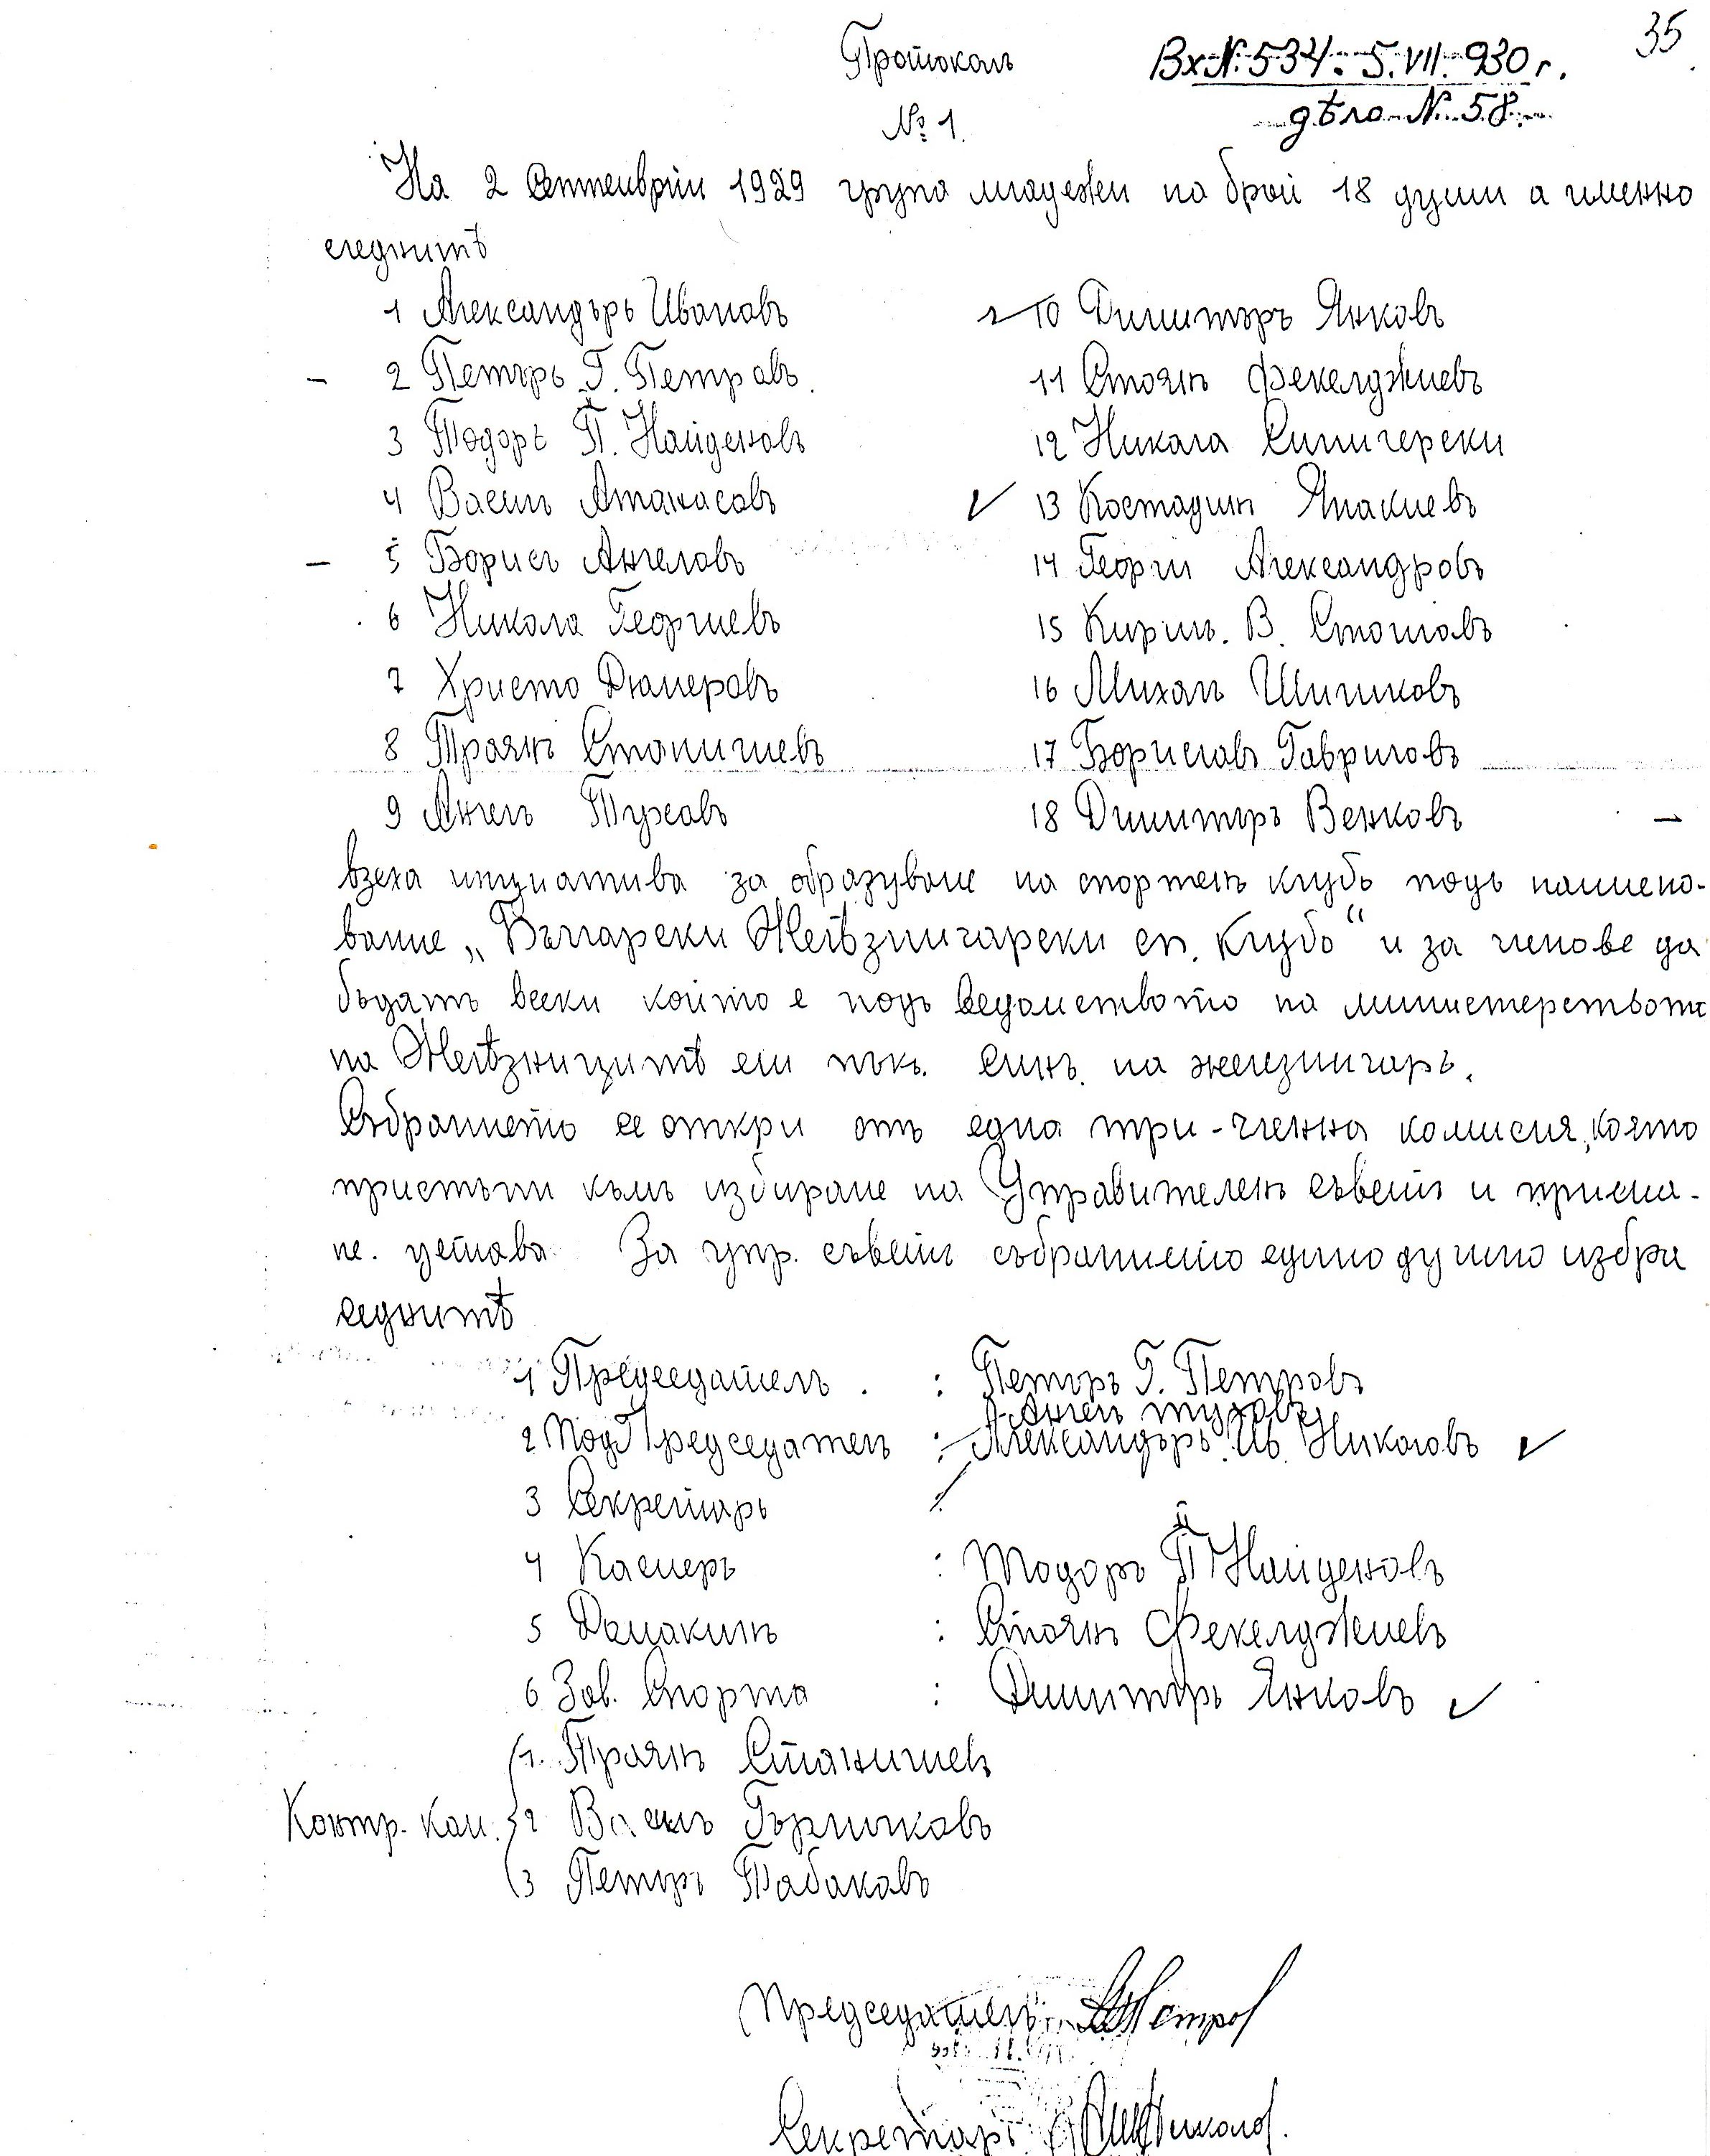 35
Протоколъ
Вх№ 534. 5.VII.930 г.
№ 1.
дѣло № 58.
На 2 Септемврий 1929 група младежи на брой 18 души а именно
следнитѣ
1 Александъръ Ивановъ
2 Петъръ Г. Петровъ
3 Тодоръ П. Найденовъ
4 Василъ Атанасовъ
5 Борисъ Ангеловъ
6 Никола Георгиевъ
7 Христо Дюлгеровъ
8 Траянъ Станишевъ
9 Ангелъ Туховъ
10 Димитъръ Янковъ
11 Стоянъ Фекелджиевъ
12 Никола Симичерски
13 Костадинъ Янакиевъ
14 Георги Александровъ
15 Кирилъ. В. Стоиловъ
16 Михалъ Шишковъ
17 Бориславъ Гавриловъ
18 Димитъръ Венковъ
взеха инциатива за образуване на спортенъ клубъ подъ наимено-
вание „Български Желѣзничарски сп. Клубъ“ и за членове да
бъдатъ всеки който е подъ ведомството на министерството
на Желѣзницитѣ или пъкъ синъ на железничаръ.
Събранието се откри отъ една три-членна комисия, която
пристъпи къмъ избиране на Управителенъ съветъ и приема-
не. устава. За упр. съветъ събранието единодушно избра
следнитѣ
1 Председателъ : Петъръ Г. Петровъ
Ангелъ Туховъ
2 Подпредседателъ : Александъръ Ив. Николовъ
3 Секретаръ :
4 Касиеръ : Тодоръ П Найденовъ
5 Домакинъ : Стоянъ Фекелджиевъ
6 Зав. Спорта : Димитъръ Янковъ
1. Траянъ Станишевъ
Контр. Ком. 2 Василъ Гърличковъ
3 Петъръ Табаковъ
Председателъ: Петров
Секретаръ: Николов.